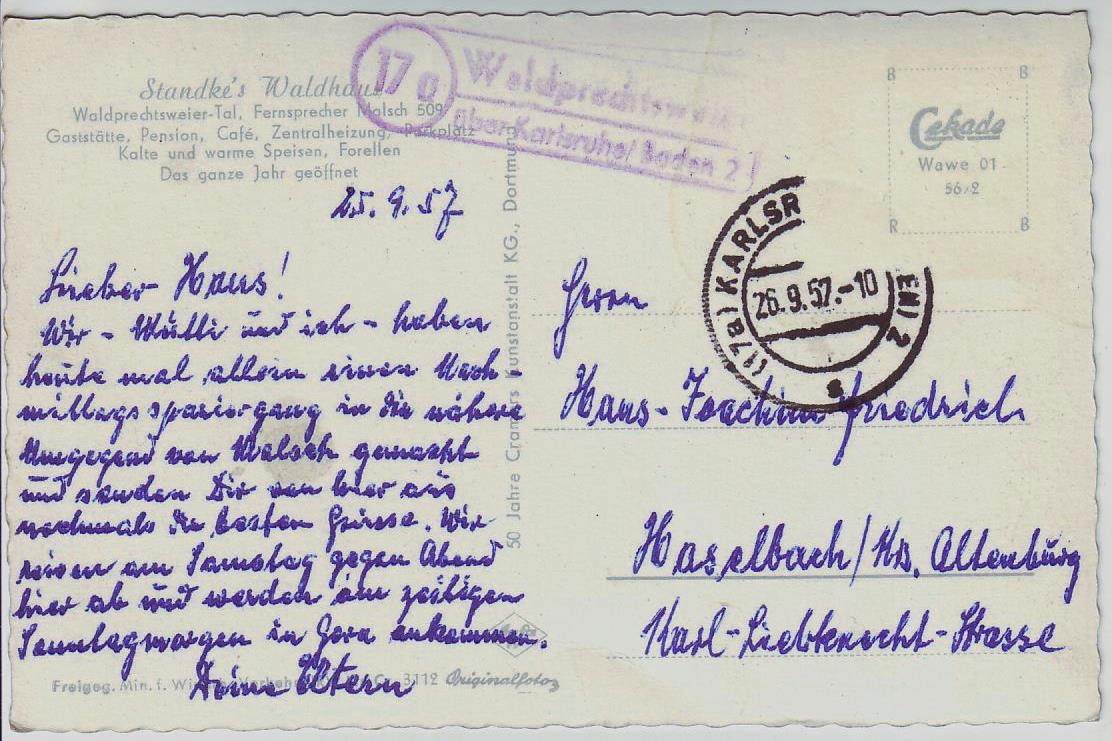 Standke's Waldhaus
Waldprechtsweier-Tal, Fernsprecher Malsch 509
Gaststätte, Pension, Café, Zentralheizung, Parkplatz
Kalte und warme Speisen, Forellen
Das ganze Jahr geöffnet
17a
Waldprechtsweier
über Karlsruhe/Baden 2
B B
Cekade
Wawe 01
56/2
R B
(17a) KARLSR EN) 2
26.9.57.-10
a
25.9.57
Lieber Hans!
Wir - Mutti und ich - haben
heute mal allein einen Nach-
mittagsspaziergang in die nähere
Umgegend von Malsch gemacht
und senden Dir von hier aus
nochmals die besten Grüsse. Wir
reisen am Samstag gegen Abend
hier ab und werden am zeitigen
Sonntagmorgen in Gera ankommen.
Deine Eltern
50 Jahre Cramers Kunstanstalt KG., Dortmund
Herrn
Hans-Joachim Friedrich
Haselbach/Kr. Altenburg
Karl-Liebknecht-Strasse
Freigeg. Min. f. Wirtsch. 3112 Originalfoto